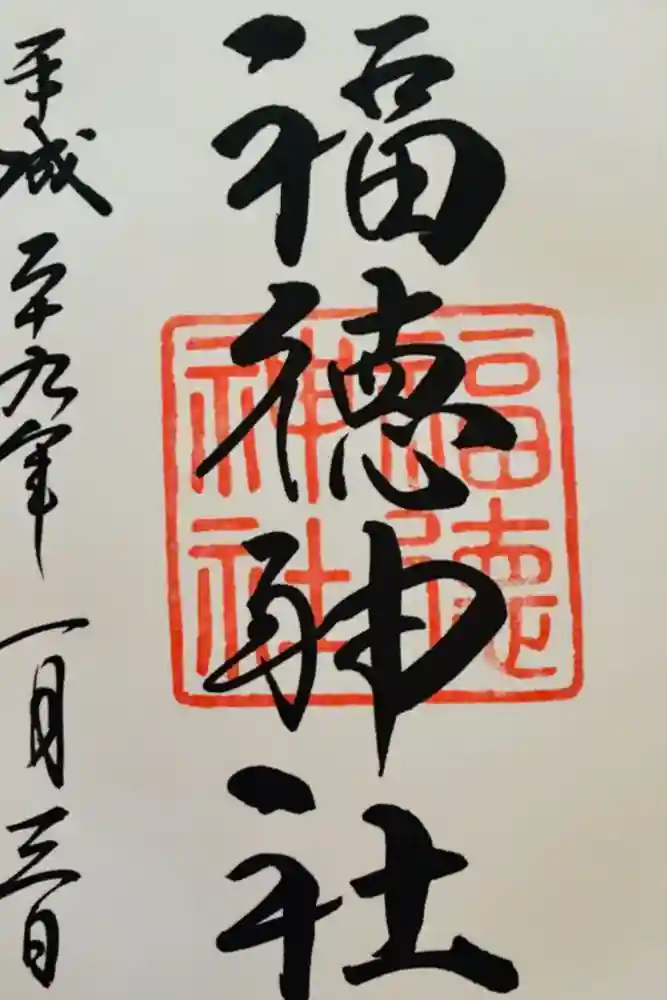 福徳神社
福徳神社
平成二十九年一月三日